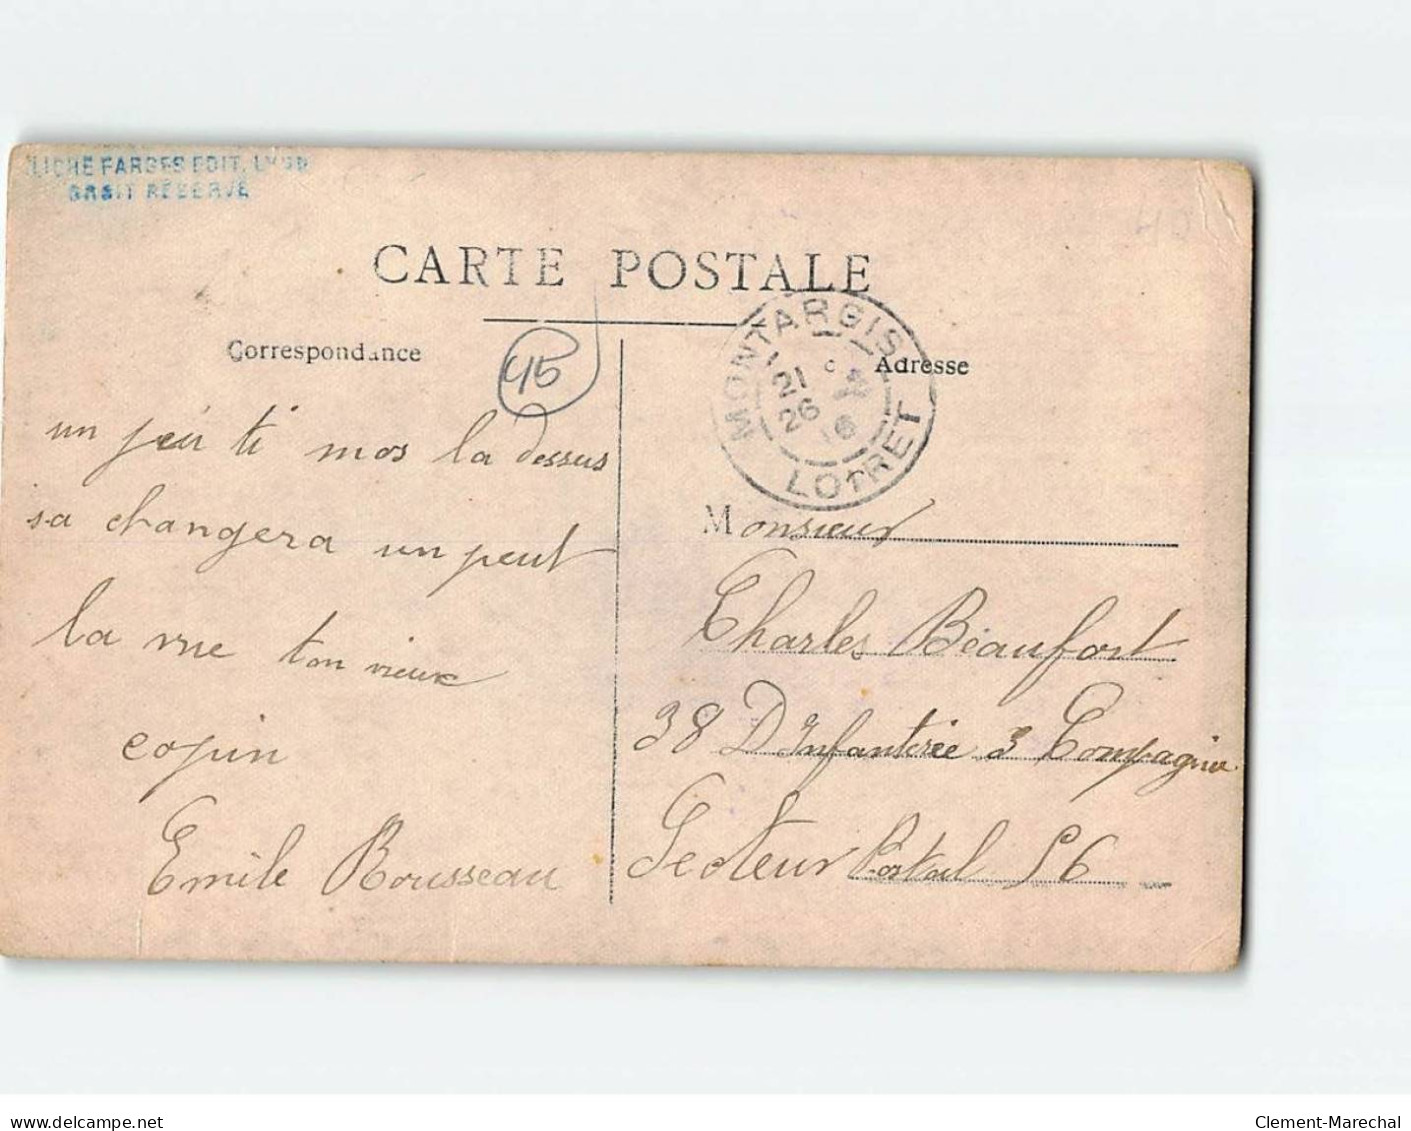 CLICHÉ FARGES EDIT. LYON
DROIT RÉSERVÉ
40
CARTE POSTALE
Correspondance
45
Adresse
MONTARGIS
21
26
16
LOIRET
un peu ti mos la dessus
sa changera un peut
la vue ton vieux
copin
Emile Rousseau
Monsieur
Charles Beaufort
38 D'Infanterie 3 Compagnie
Secteur Postal 56
www.delcampe.net
Clement-Marechal